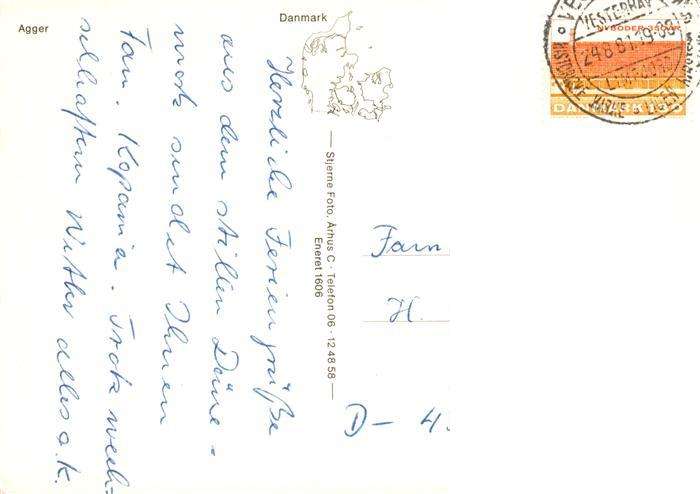 Agger
Danmark
Herzliche Feriengrüße
aus dem stillen Däne-
mark sendet Ihnen
Fam. Kopania. Trotz wech=
selhaftem Wetter alles o.k.
Stjerne Foto, Århus C · Telefon 06 - 12 48 58
Eneret 1606
Fam
H.
D- 4.
NYBODER 350 ÅR
DANMARK 130
VESTERHAV
24.8.81.19-08